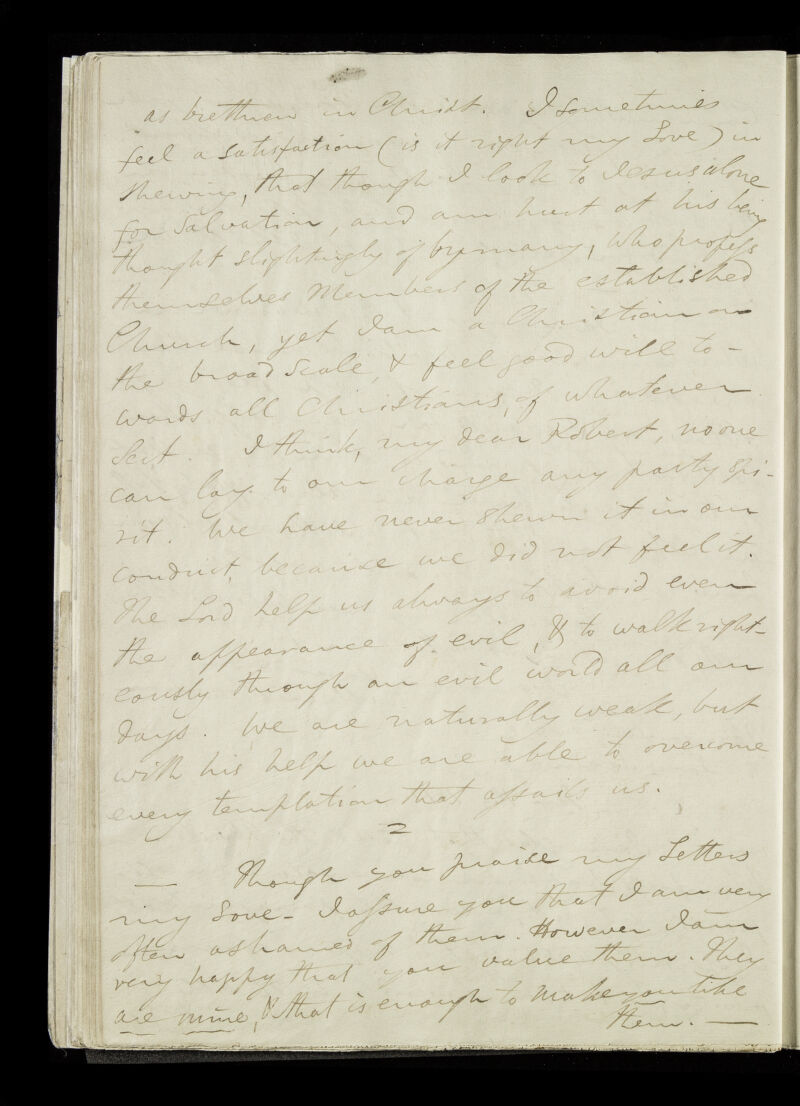 as brethren in Christ. I sometimes
feel a satisfaction (is it right my Love) in
shewing, that though I look to Jesus alone
for Salvation, and am hurt at his being
thought slightingly of by many, who profess
themselves Members of the established
Church, yet I am a Christian on
the broad Scale, & feel good will to-
wards all Christians, of whatever
Sect. I think, my dear Robert, no one
can lay to our charge any party spi-
rit. We have never shewn it in our
conduct, because we did not feel it.
The Lord help us always to avoid even
the appearance of evil, & to walk right-
eously through an evil world all our
days. We are naturally weak, but
with his help we are able to overcome
every temptation that assails us.
2
— Though you praise my Letters
my Love - I assure you that I am very
often ashamed of them. However I am
very happy that you value them. They
are mine, & that is enough to make you like
them. —